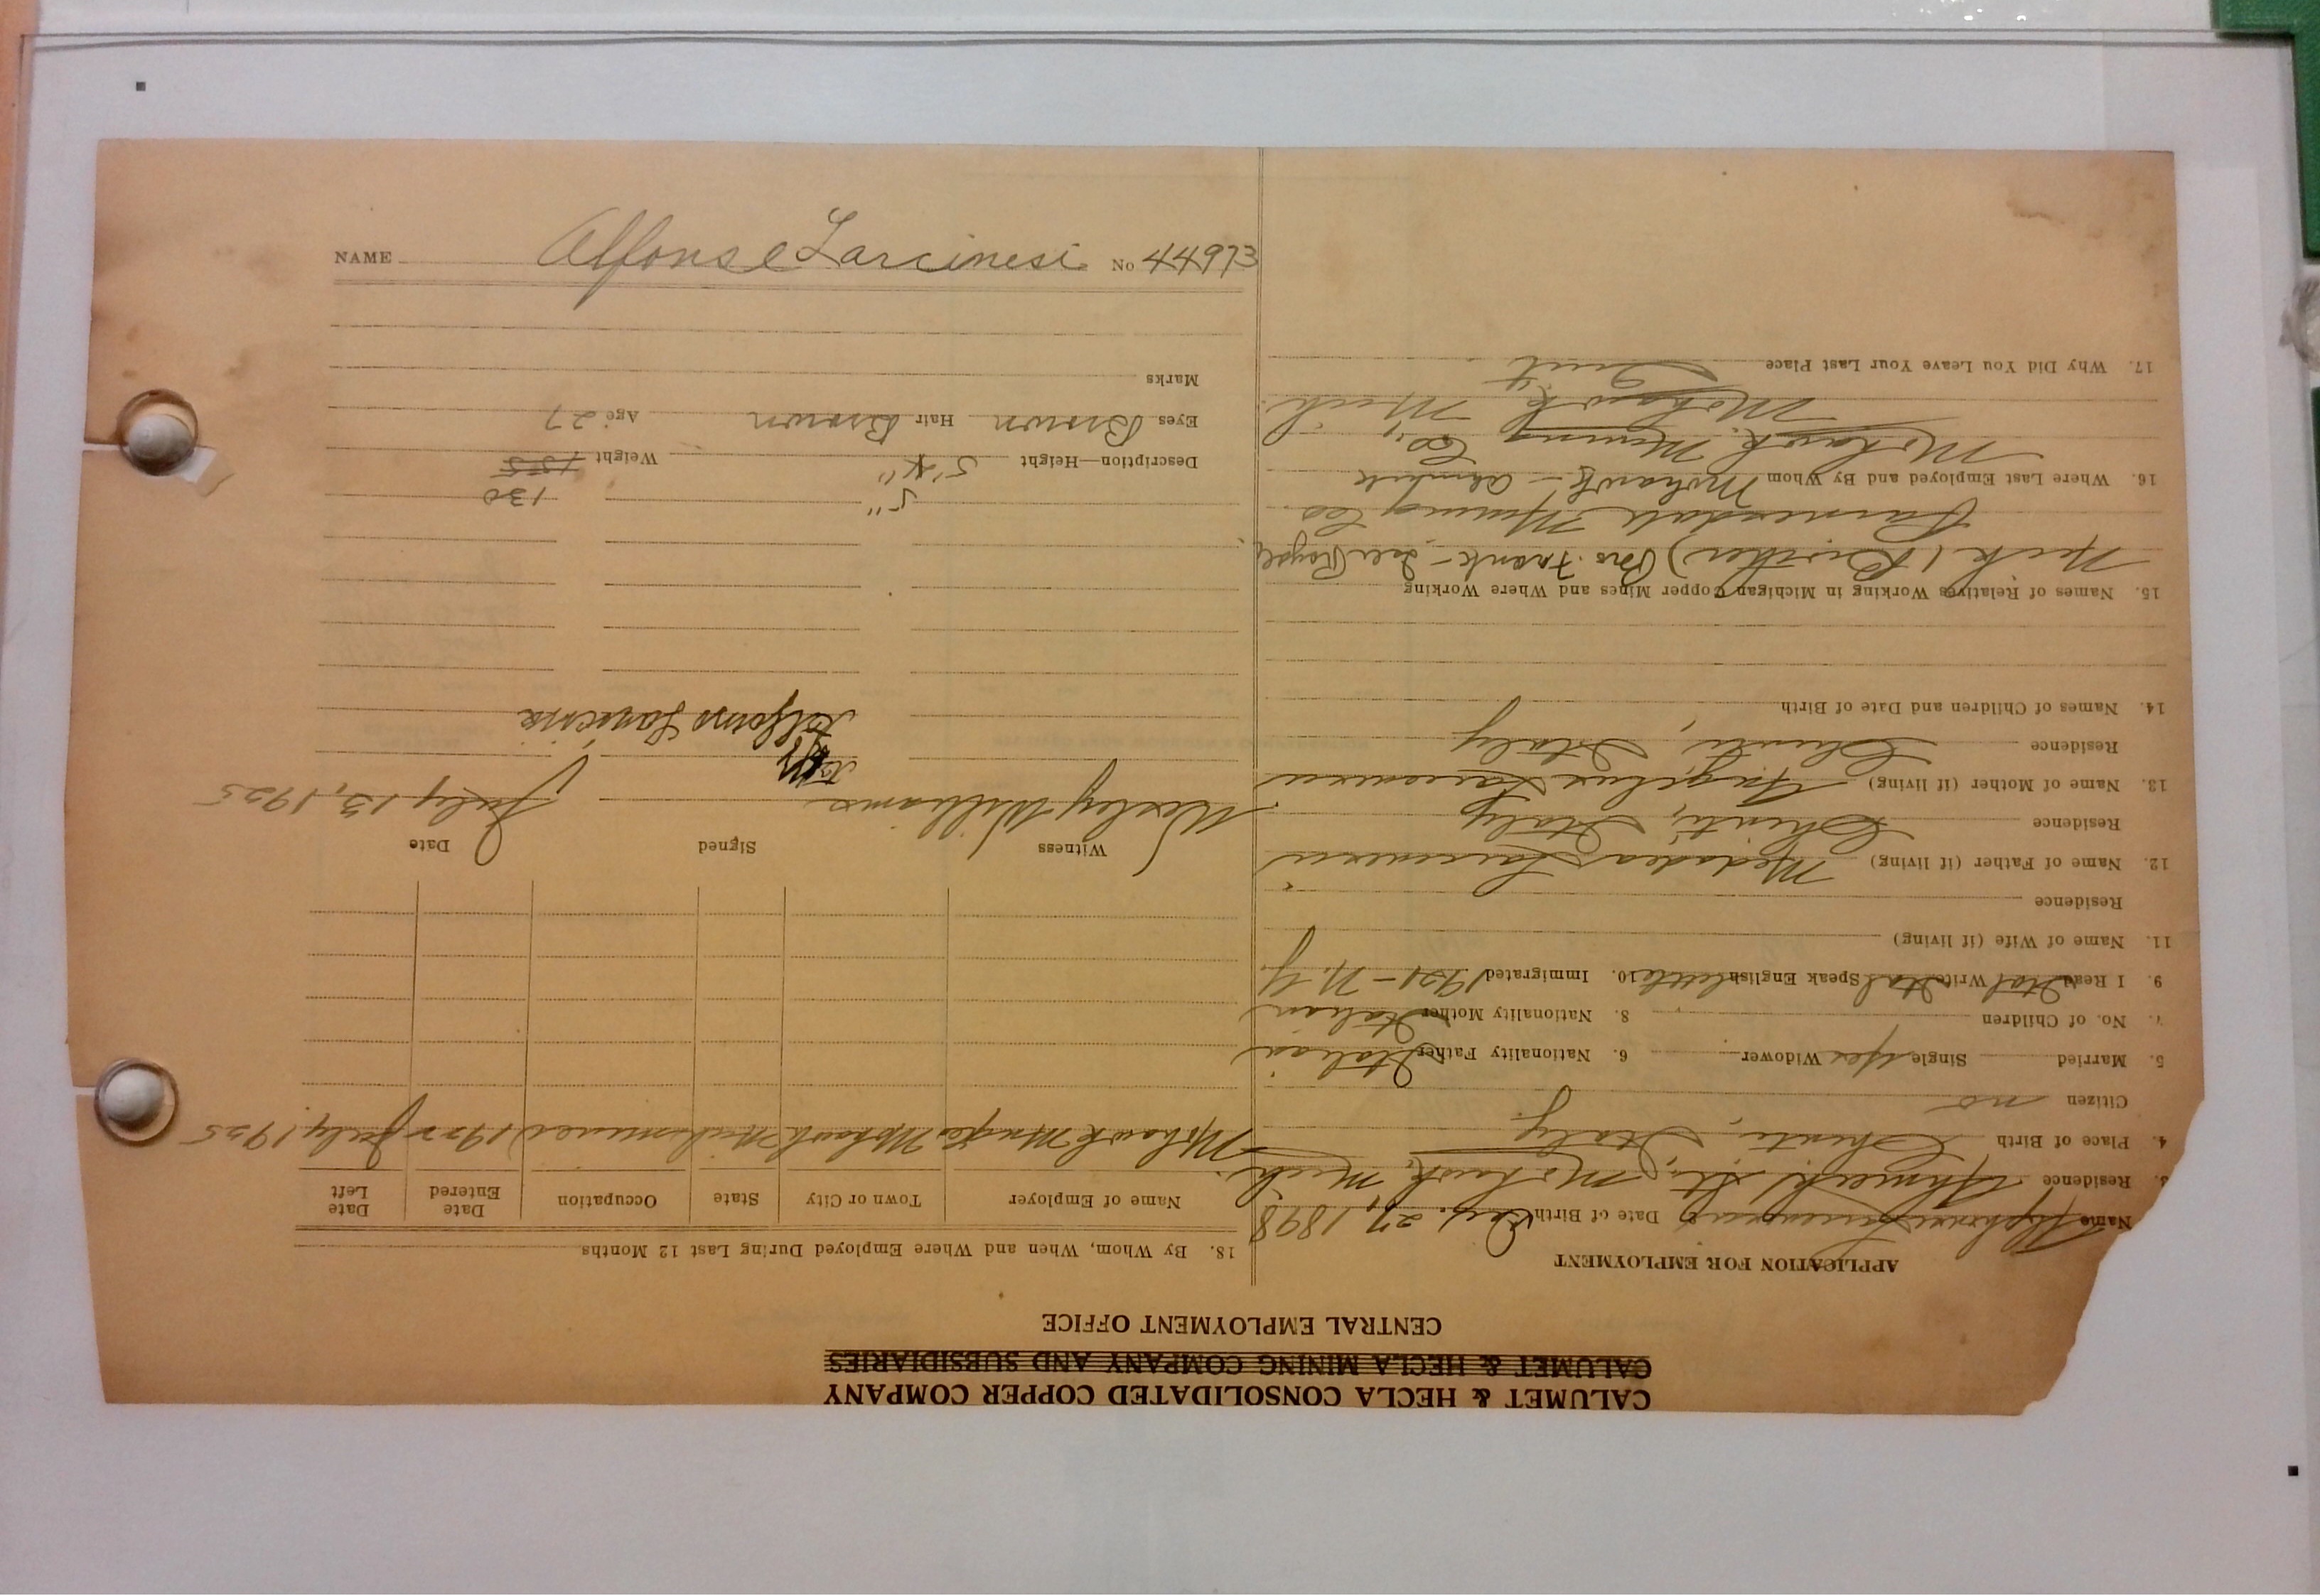 NAME Alfonse Larcinesi No 44973
CALUMET & HECLA CONSOLIDATED COPPER COMPANY
CALUMET & HECLA MINING COMPANY AND SUBSIDIARIES
CENTRAL EMPLOYMENT OFFICE
APPLICATION FOR EMPLOYMENT
Name Date of Birth 27, 1898
3. Residence Ahmeek St., Mohawk, Mich.
4. Place of Birth Chieti, Italy
Citizen no
5. Married Single yes Widower 6. Nationality Father Italian
7. No. of Children 8. Nationality Mother Italian
9. I Read Ital Write Ital Speak English little 10. Immigrated 1921 - N.Y.
11. Name of Wife (if living)
Residence
12. Name of Father (if living)
Residence Chieti, Italy
13. Name of Mother (if living)
Residence Chieti, Italy
14. Names of Children and Date of Birth
15. Names of Relatives Working in Michigan Copper Mines and Where Working
Nick (Brother) Bro. Frank - Isle Royale
Mining Co.
16. Where Last Employed and By Whom Mohawk - Ahmeek
Mohawk Mining Co.,
Mohawk, Mich.
17. Why Did You Leave Your Last Place Quit
18. By Whom, When and Where Employed During Last 12 Months
Name of Employer Town or City State Occupation Date Entered Date Left
Mohawk Mng Co Mohawk Mich miner 1922 July 1925
Witness Signed Date
Wesley Williams July 13, 1925
Alfonso
5" 130
Description—Height 5'4" Weight 155
Eyes Brown Hair Brown Age 27
Marks